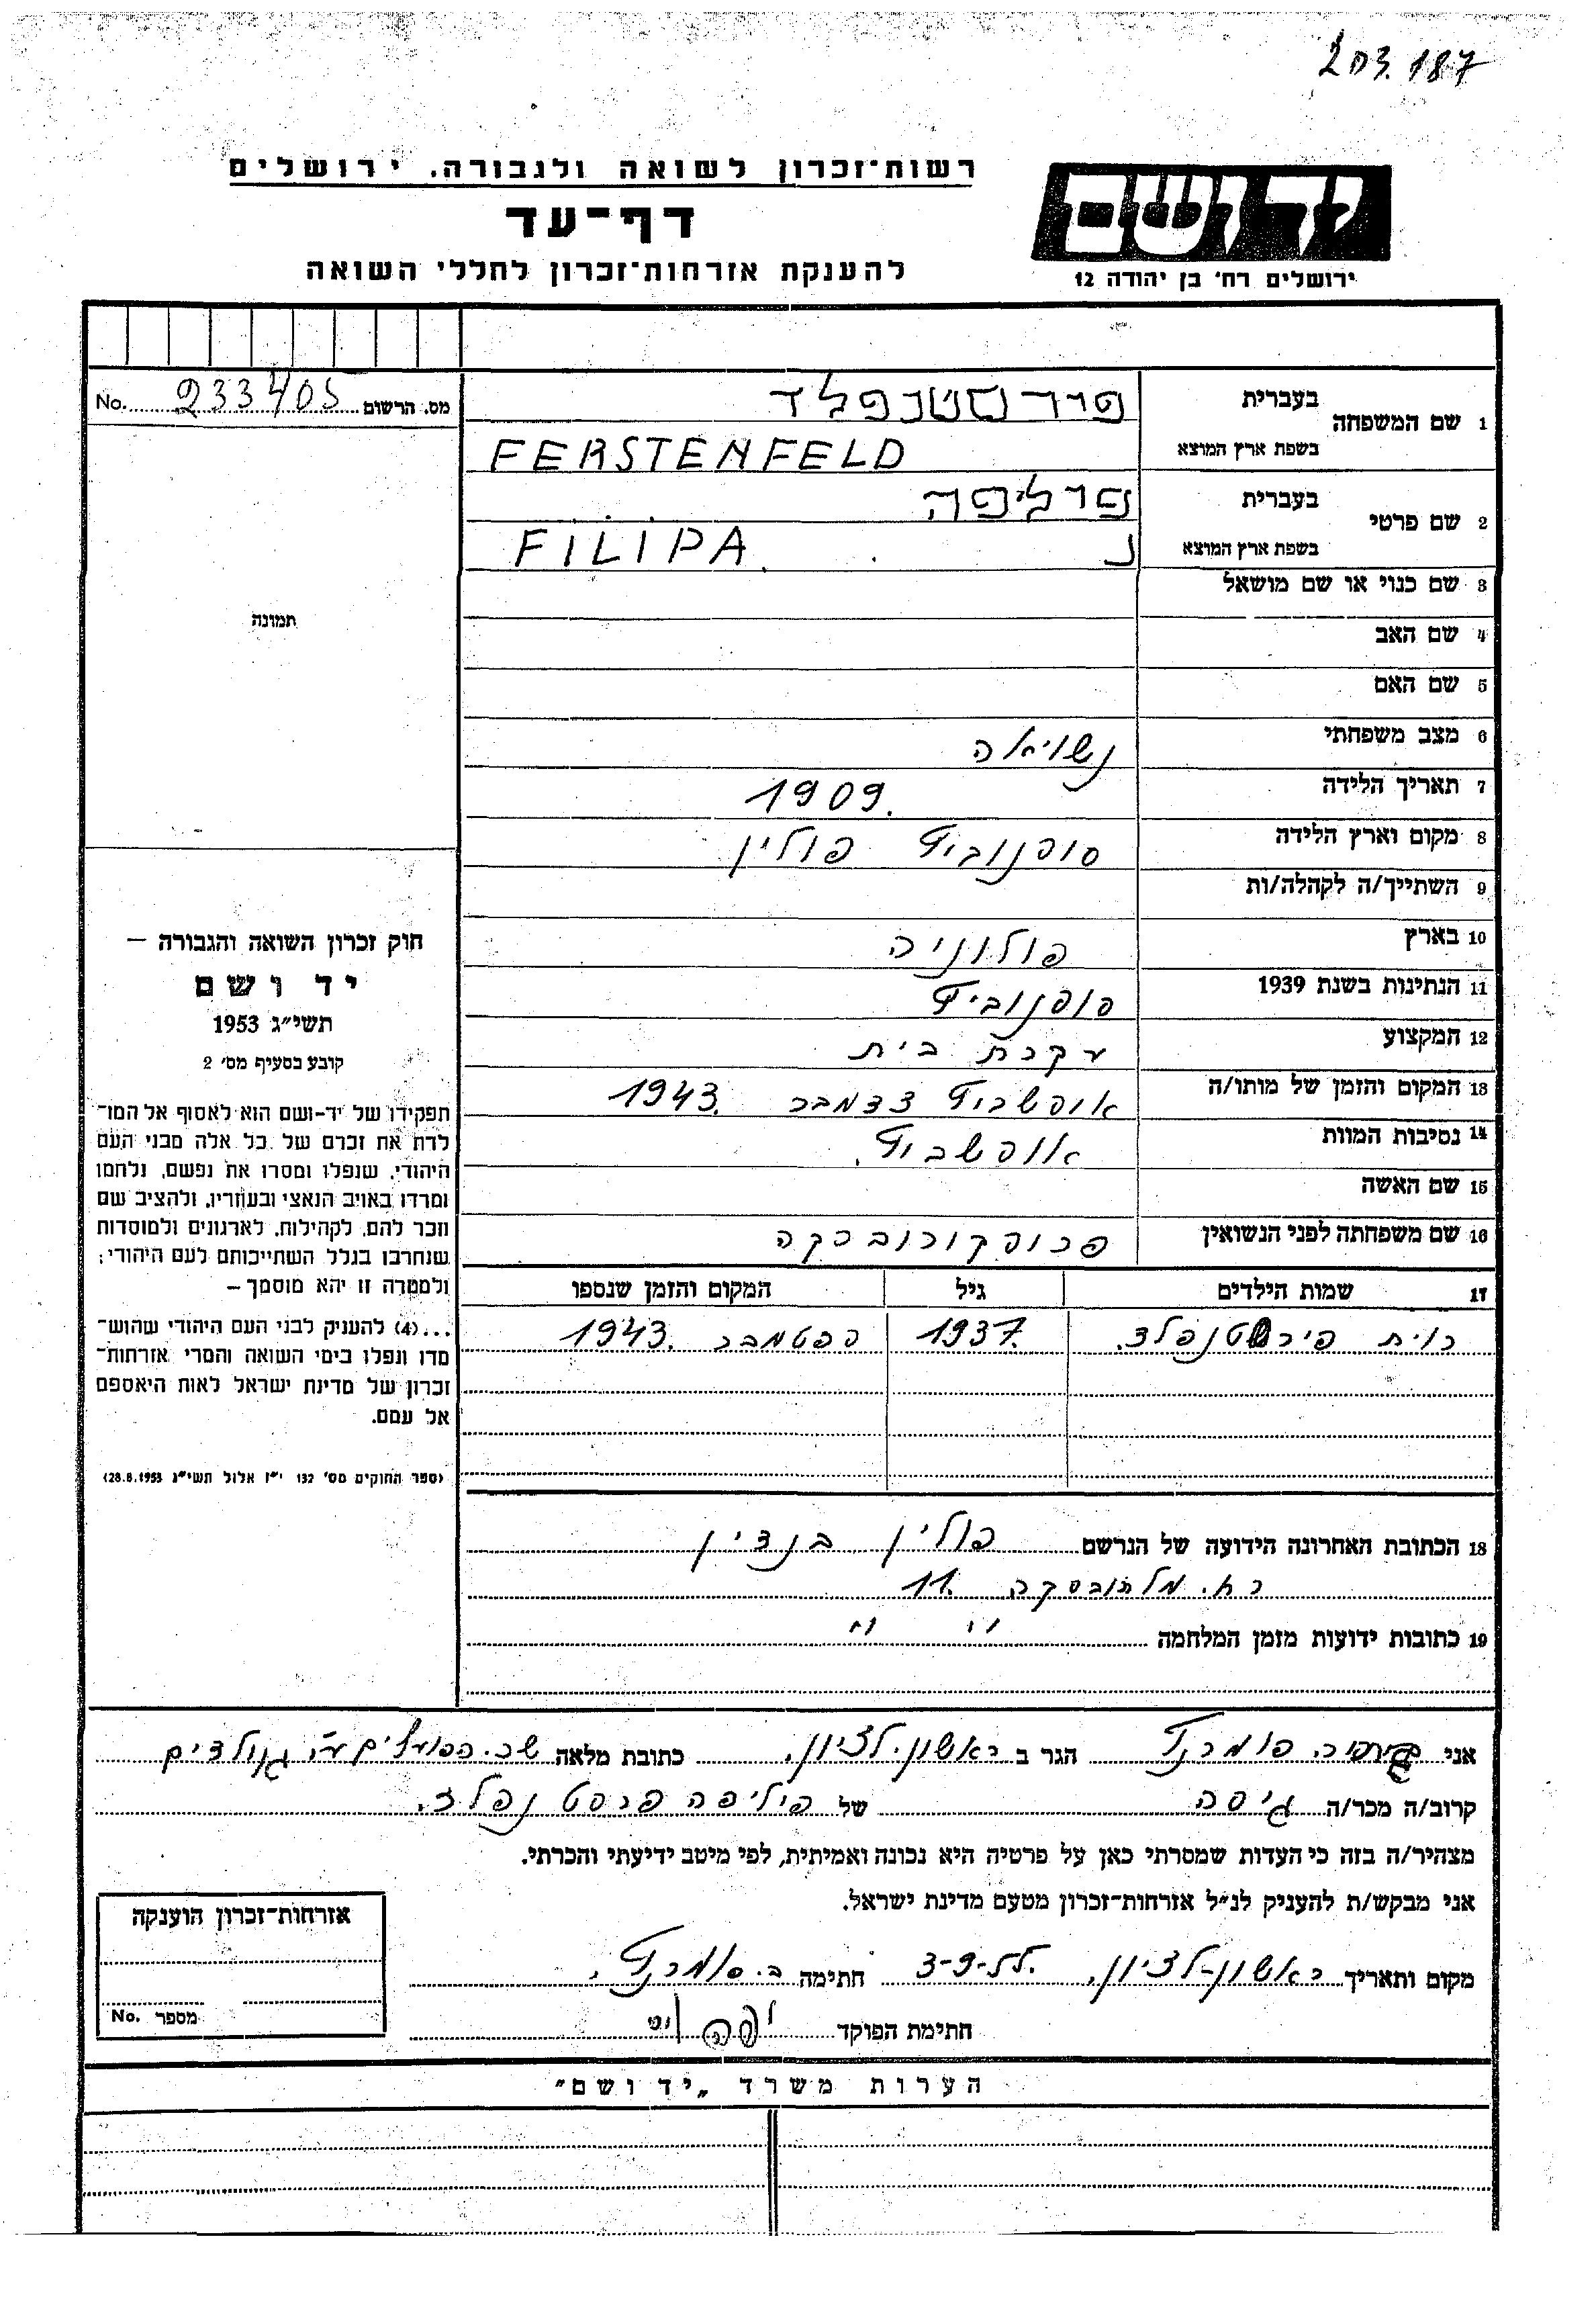 203.187
רשות־זכרון לשואה ולגבורה. ירושלים
יד ושם
דף־עד
להענקת אזרחות־זכרון לחללי השואה
ירושלים רח׳ בן יהודה 12
מס. הרשום 233405 No.
1 שם המשפחה בעברית פירסטנפלד
בשפת ארץ המוצא FERSTENFELD
2 שם פרטי בעברית פיליפה
בשפת ארץ המוצא FILIPA נ
3 שם כנוי או שם מושאל
תמונה
4 שם האב
5 שם האם
6 מצב משפחתי נשויאה
7 תאריך הלידה 1909.
8 מקום וארץ הלידה סוסנוביץ פולין
9 השתייך/ה לקהלה/ות
10 בארץ פולוניה
11 הנתינות בשנת 1939 סוסנוביץ
12 המקצוע עקרת בית
13 המקום והזמן של מותו/ה אושביץ דצמבר 1943.
14 נסיבות המוות אושביץ.
15 שם האשה
16 שם משפחתה לפני הנשואין
17 שמות הילדים גיל המקום והזמן שנספו
רוית פירשטנפלד. 1937. ספטמבר 1943.
חוק זכרון השואה והגבורה –
יד ושם
תשי״ג 1953
קובע בסעיף מס׳ 2
תפקידו של יד-ושם הוא לאסוף אל המו־
לדת את זכרם של כל אלה מבני העם
היהודי, שנפלו ומסרו את נפשם, נלחמו
ומרדו באויב הנאצי ובעוזריו, ולהציב שם
וזכר להם, לקהילות, לארגונים ולמוסדות
שנחרבו בגלל השתייכותם לעם היהודי;
ולמטרה זו יהא מוסמך –
...(4) להענין לבני העם היהודי שהוש־
מדו ונפלו בימי השואה והמרי אזרחות־
זכרון של מדינת ישראל לאות היאספם
אל עמם.
(ספר החוקים מס׳ 132 י״ז אלול תשי״ג 28.8.1953)
18 הכתובת האחרונה הידועה של הנרשם פולין בנדין
רח. מלחובסקה 11.
19 כתובות ידועות מזמן המלחמה " "
אני הגר ב ראשון-לציון. כתובת מלאה שכ. הפועלים
קרוב/ה מכר/ה גיסה של פיליפה פרסטנפלד.
מצהיר/ה בזה כי העדות שמסרתי כאן על פרטיה היא נכונה ואמיתית, לפי מיטב ידיעתי והכרתי.
אני מבקש/ת להעניק לנ״ל אזרחות־זכרון מטעם מדינת ישראל.
מקום ותאריך ראשון-לציון. חתימה
חתימת הפוקד
אזרחות־זכרון הוענקה
מספר No.
הערות משרד „יד ושם״